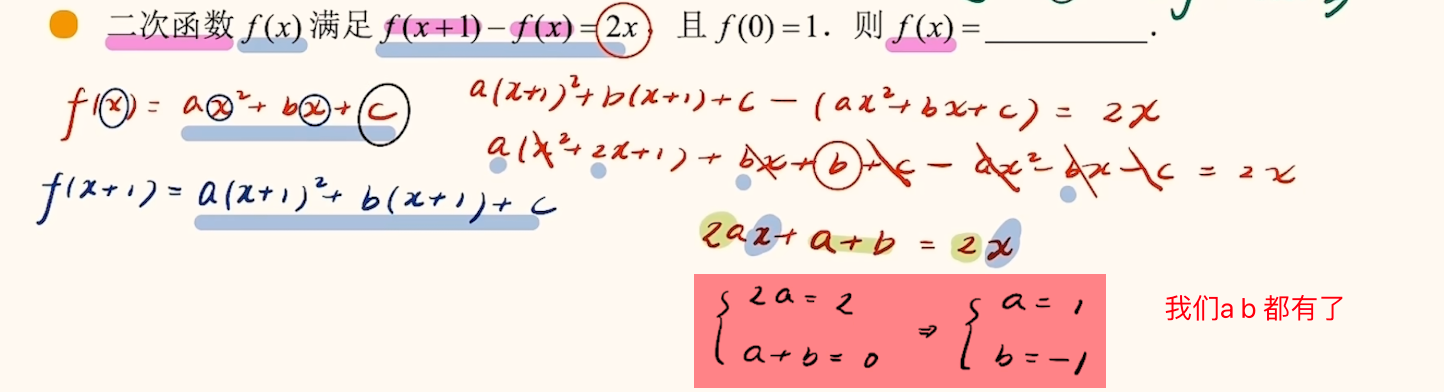 二次函数 f(x) 满足 f(x+1)−f(x)=2x 且 f(0)=1. 则 f(x)=__________.
f(x) = ax²+ bx+ c
a(x+1)²+b(x+1)+c − (ax²+bx+c) = 2x
a(x²+2x+1) + bx+b+c − ax²−bx−c = 2x
f(x+1) = a(x+1)²+ b(x+1)+ c
2ax+ a+b = 2x
{ 2a = 2
a+b = 0
⇒ { a = 1
b = −1
我们a b 都有了